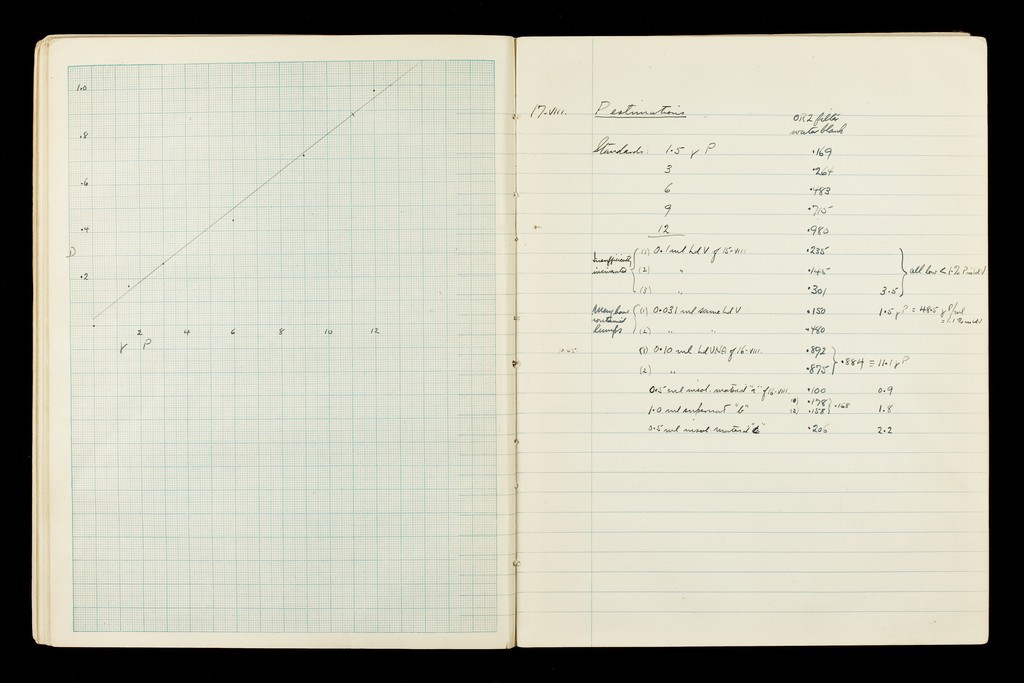 1.0
.8
.6
.4
D
.2
2 4 6 8 10 12
γ P
17-VIII. P estimations
OR2 filter
water blank
Standards: 1.5 γ P .169
3 .264
6 .483
9 .715
12 .980
Insufficiently incinerated (1) 0.1 ml Ld V of 15-VIII .235
(2) " .145
(3) " .301 3.5
all low
May have contained lumps (1) 0.031 ml same Ld V .150 1.5 γP = 48.5 γP/ml
(2) " " .480
(1) 0.10 ml Ld UNA of 16-VIII. .892
(2) " .875
.884 ≡ 11.1 γP
0.5 ml insol. material "a" of 16-VIII. .100 0.9
1.0 ml supernat "b" (1) .178 .168 1.8
(2) .158
0.5 ml insol material "b" .206 2.2